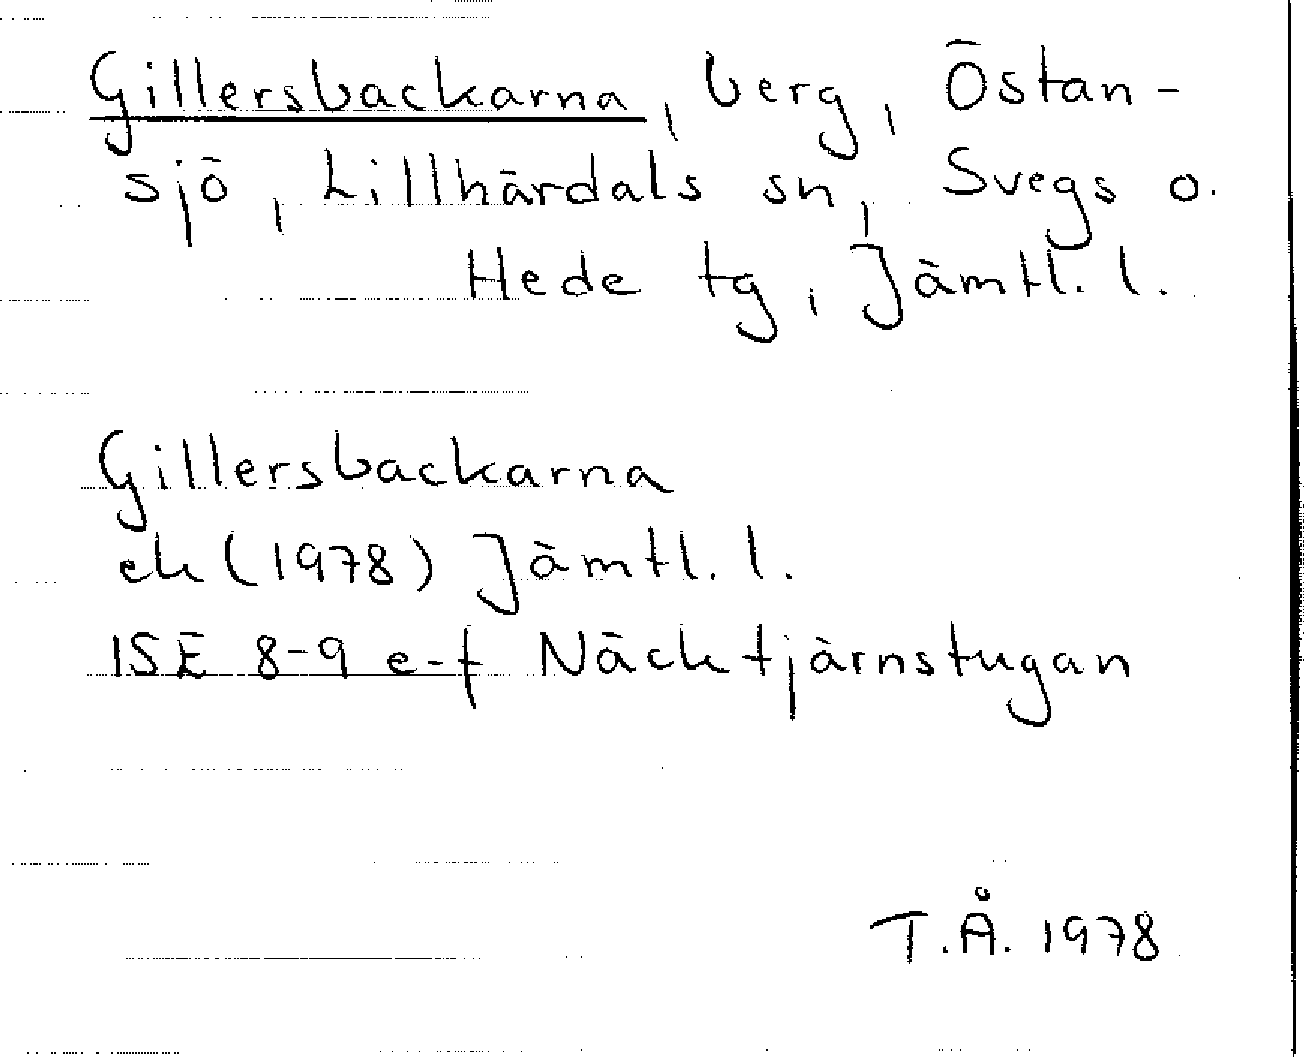 Gillersbackarna, berg, Östan-
sjö, Lillhärdals sn, Svegs o.
Hede tg, Jämtl. l.
Gillersbackarna
ek (1978) Jämtl. l.
15E 8-9 e-f Näcktjärnstugan
T.Å. 1978